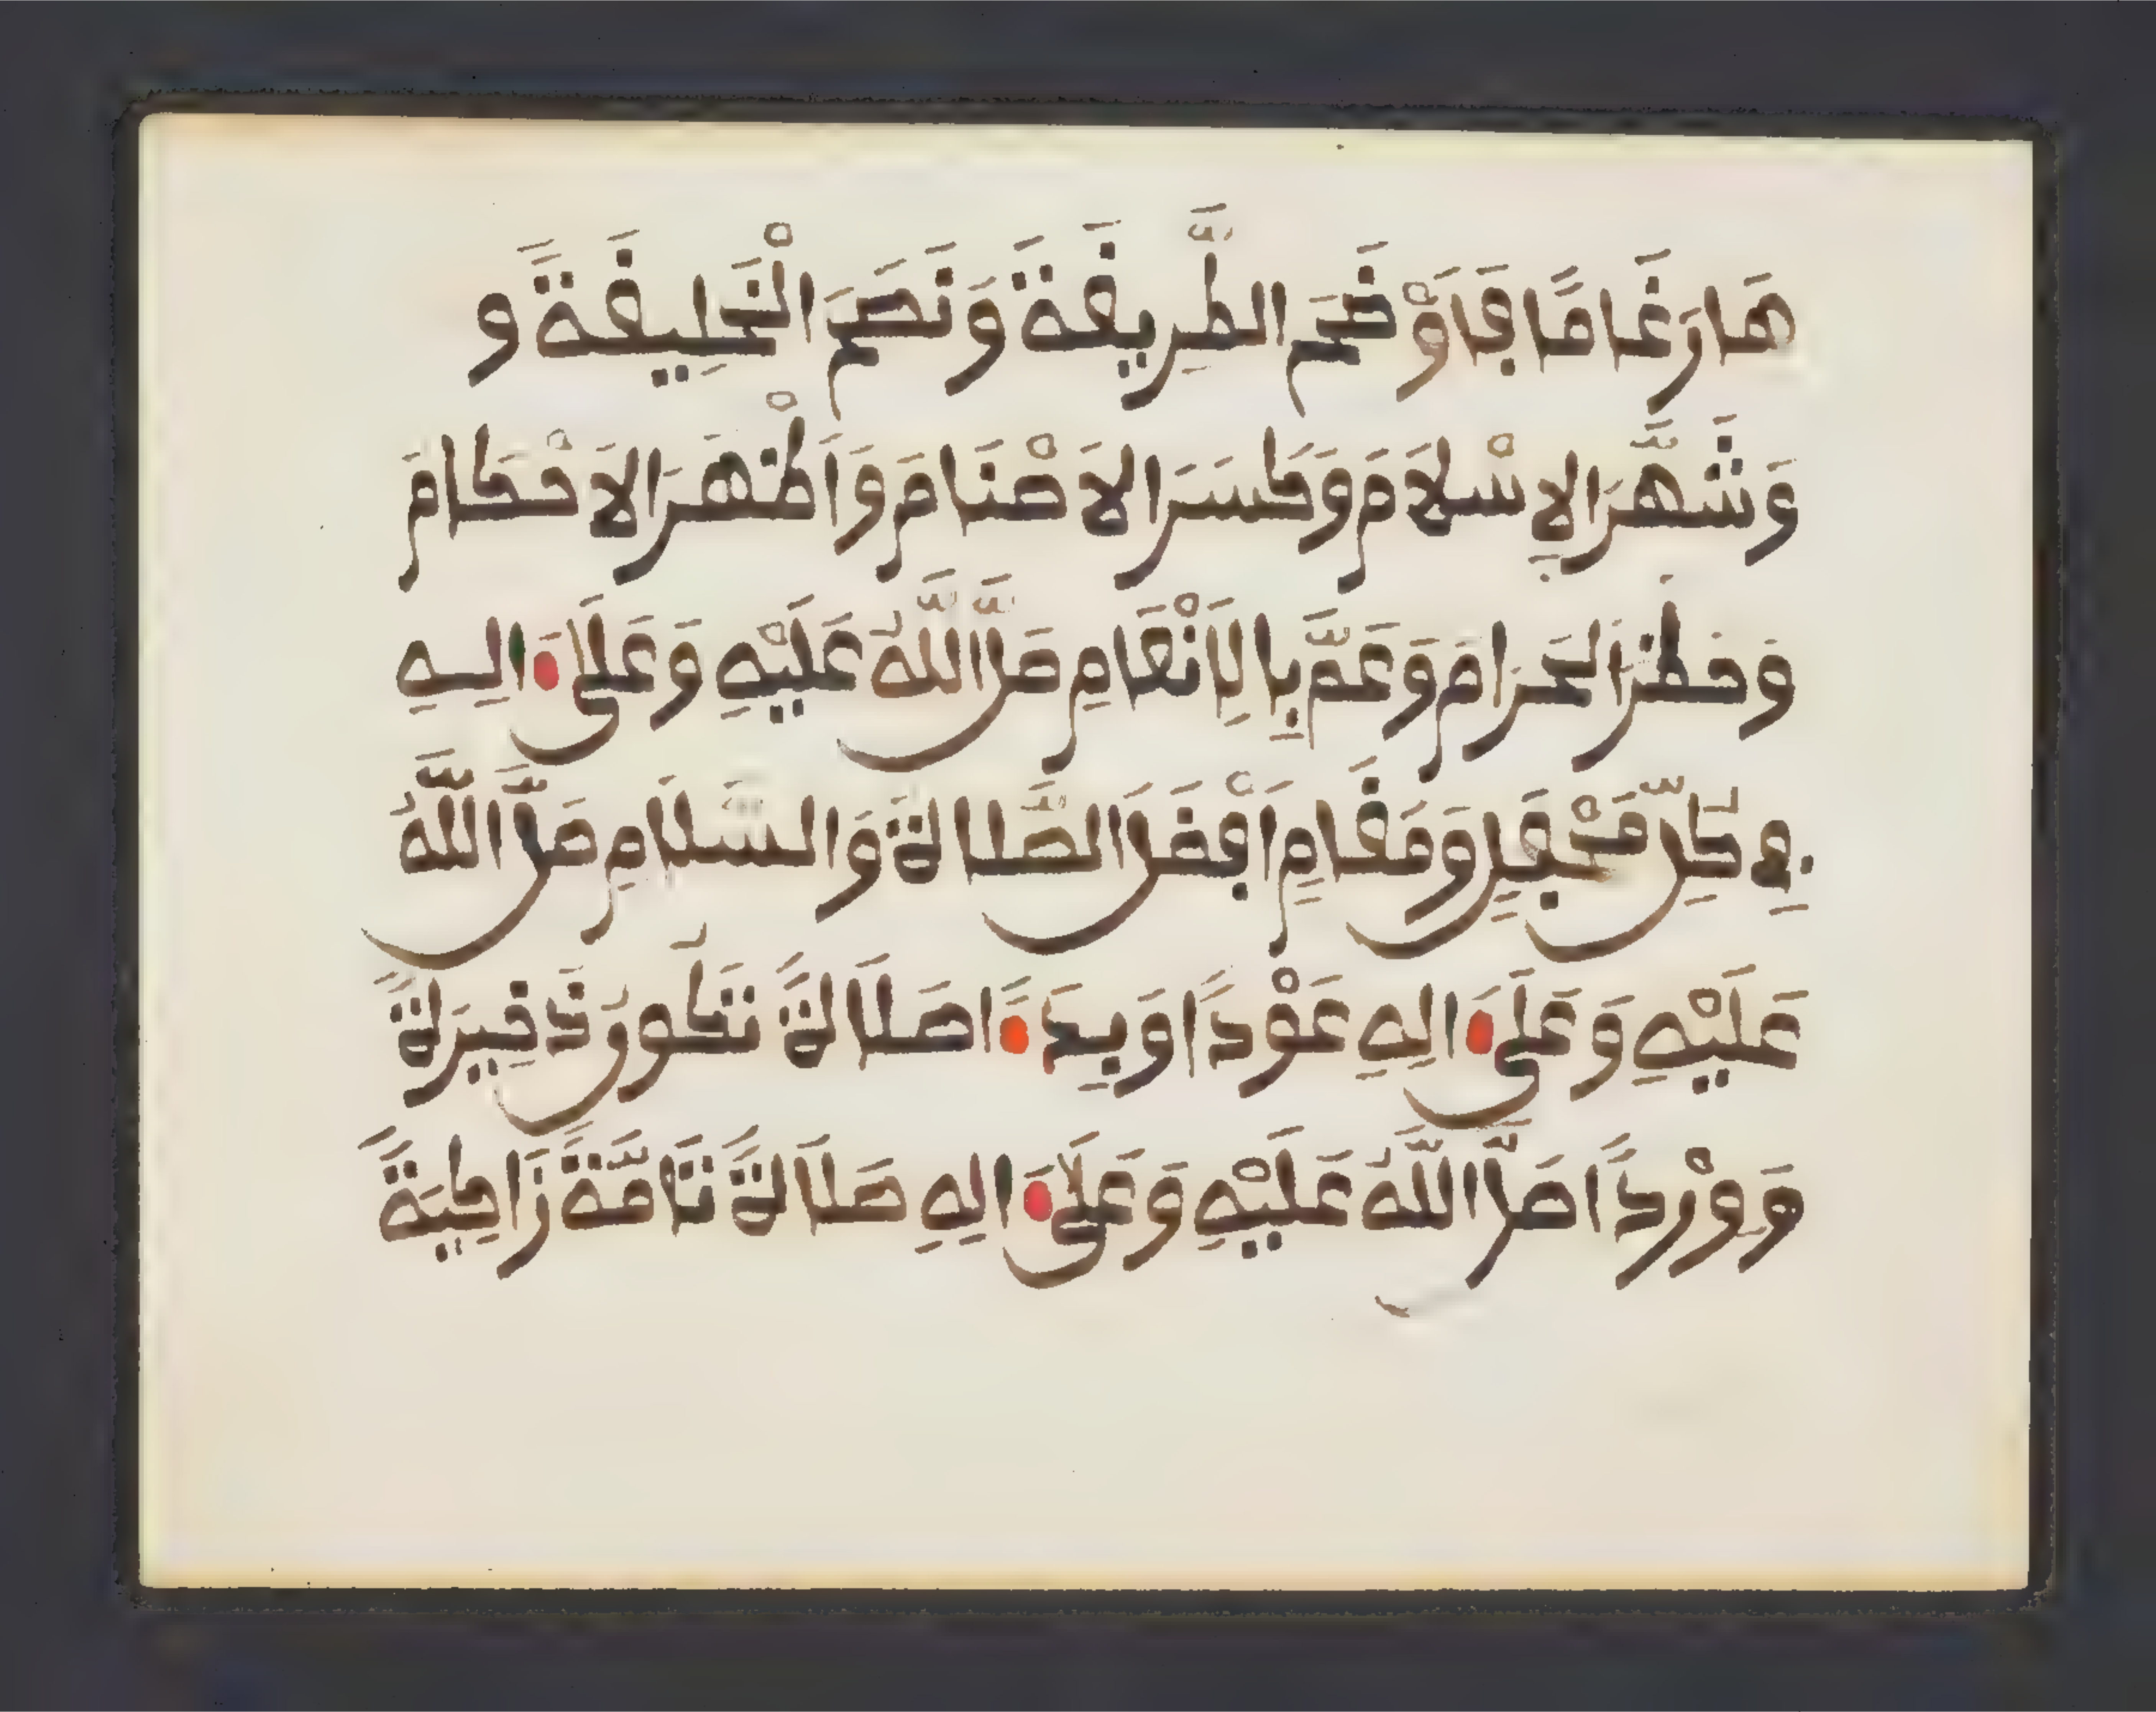 هَارَغَامًا فَاَوْضَحَ الطَّرِيقَةَ وَنَصَحَ الْخَلِيقَةَ وَ
وَشَهَّرَ الاِسْلَامَ وَكَسَرَ الاَصْنَامَ وَاَظْهَرَ الاَحْكَامَ
وَحَظَرَ الْحَرَامَ وَعَمَّ بِالاِنْعَامِ صَلَّى اللَّهُ عَلَيْهِ وَعَلَى اٰلِهِ
فِي كُلِّ مَحْفِلٍ وَمَقَامٍ اَفْضَلَ الصَّلَاةِ وَالسَّلَامِ صَلَّى اللَّهُ
عَلَيْهِ وَعَلَى اٰلِهِ عَوْدًا وَبَدْءًا صَلَاةً تَكُونُ ذَخِيرَةً
وَوِرْدًا صَلَّى اللَّهُ عَلَيْهِ وَعَلَى اٰلِهِ صَلَاةً تَامَّةً زَاكِيَةً